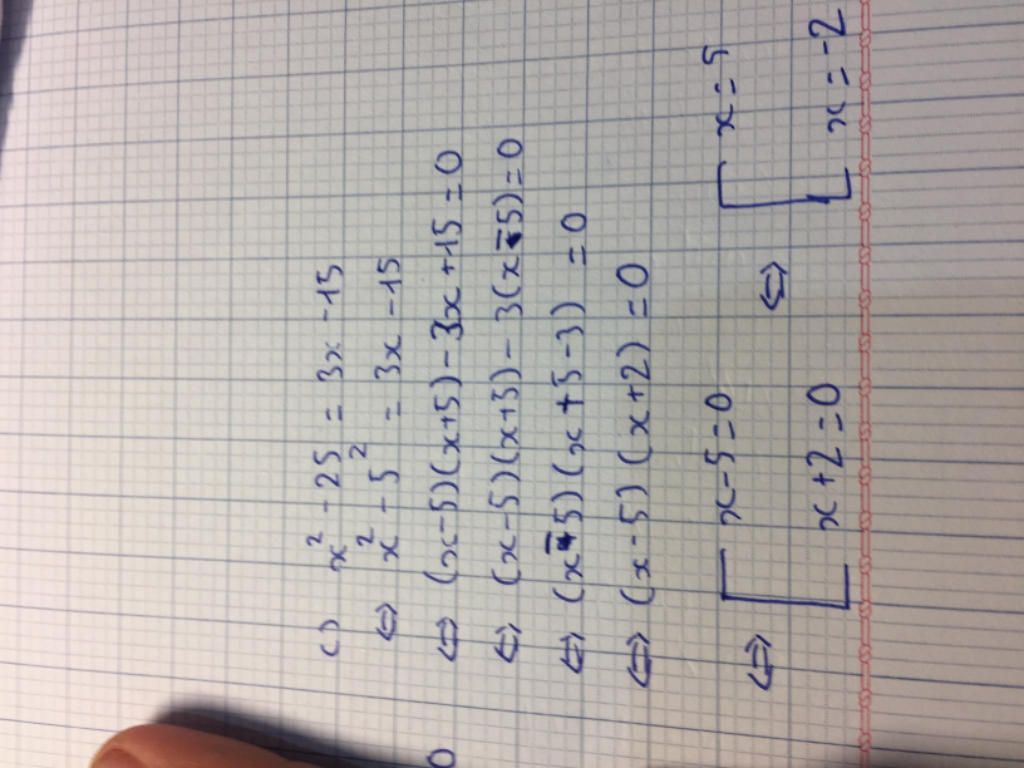 () x² - 25 = 3x - 15
⇔ x² - 5² = 3x - 15
⇔ (x-5)(x+5) - 3x + 15 = 0
⇔ (x-5)(x+5) - 3(x-5) = 0
⇔ (x-5)(x+5-3) = 0
⇔ (x-5)(x+2) = 0
⇔ [ x-5=0 ⇔ [ x=5
x+2=0 x=-2
0